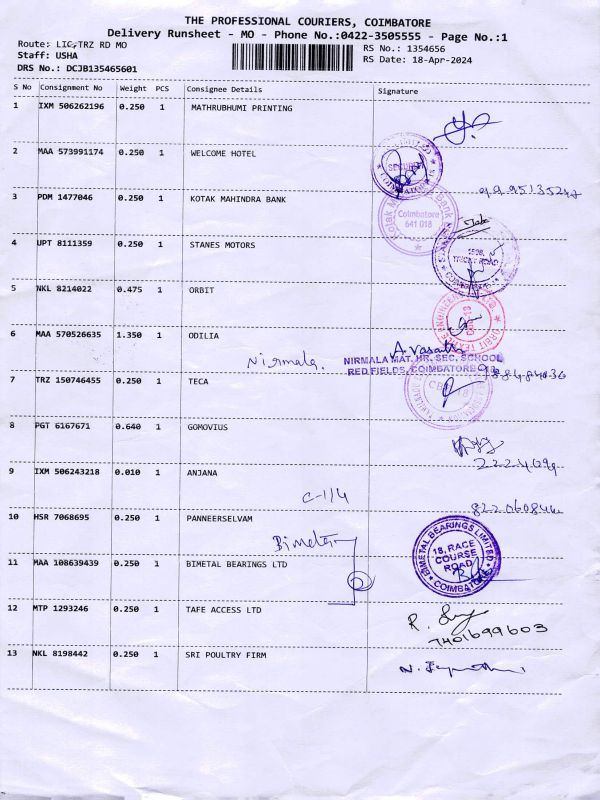 THE PROFESSIONAL COURIERS, COIMBATORE
Delivery Runsheet - MO - Phone No.:0422-3505555 - Page No.:1
Route: LIC,TRZ RD MO
RS No.: 1354656
Staff: USHA
RS Date: 18-Apr-2024
DRS No.: DCJB135465601
S No Consignment No Weight PCS Consignee Details Signature
1 IXM 506262196 0.250 1 MATHRUBHUMI PRINTING
2 MAA 573991174 0.250 1 WELCOME HOTEL
SECURITY
COIMBATORE
3 PDM 1477046 0.250 1 KOTAK MAHINDRA BANK
Kotak Bank
Coimbatore
641 018
4 UPT 8111359 0.250 1 STANES MOTORS
TRICHY ROAD
5 NKL 8214022 0.475 1 ORBIT
6 MAA 570526635 1.350 1 ODILIA
Nirmala. A. Vasanthi
NIRMALA MAT. HR. SEC. SCHOOL
RED FIELDS, COIMBATORE
7 TRZ 150746455 0.250 1 TECA
8 PGT 6167671 0.640 1 GOMOVIUS
9 IXM 506243218 0.010 1 ANJANA
C-1/4
10 HSR 7068695 0.250 1 PANNEERSELVAM
Bimetal
11 MAA 108639439 0.250 1 BIMETAL BEARINGS LTD
BIMETAL BEARINGS LIMITED
18, RACE
COURSE
ROAD
COIMBATORE
12 MTP 1293246 0.250 1 TAFE ACCESS LTD
7401699603
13 NKL 8198442 0.250 1 SRI POULTRY FIRM